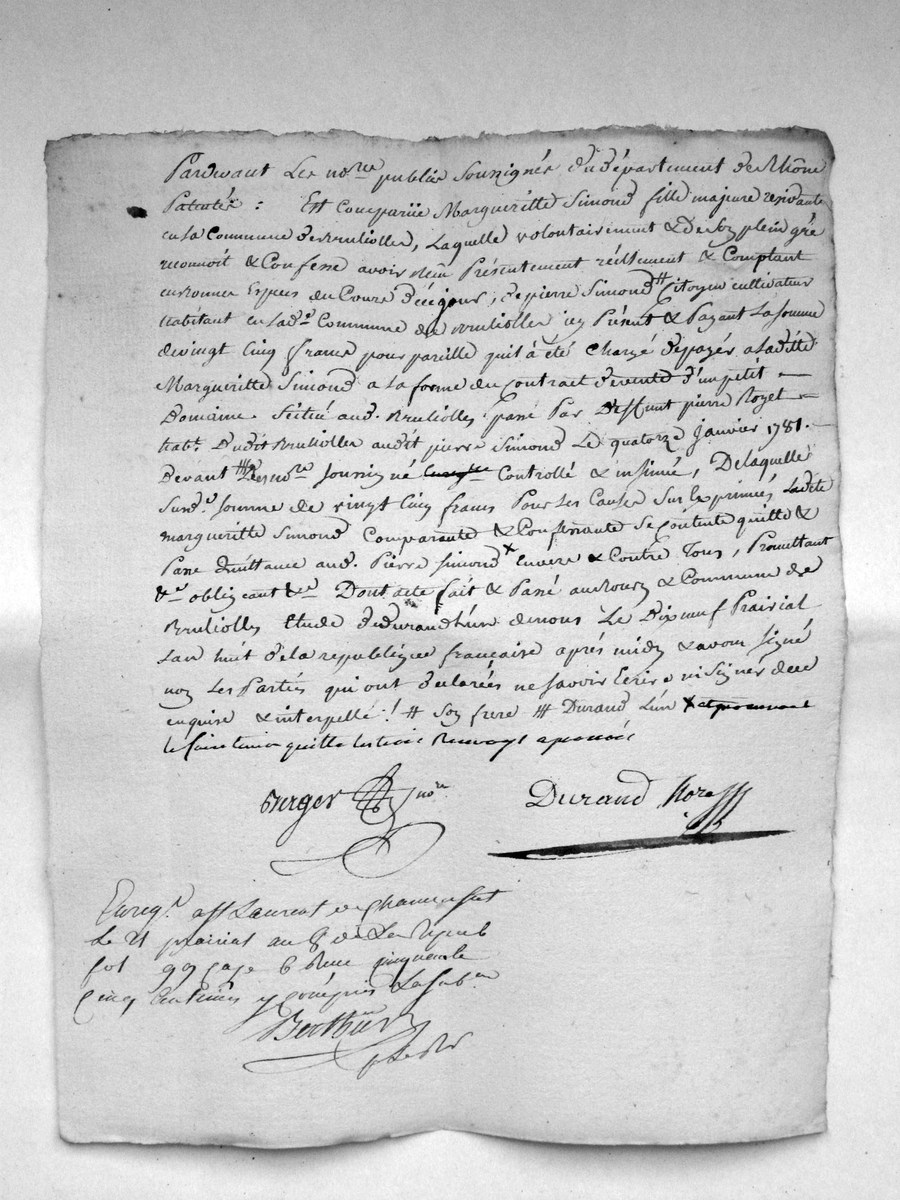 Pardevant Les no.res publics Soussignés du département du Rhône
Patentés : Est Comparüe Margueritte Simond fille majeure residante
en la Commune de Brulliolles, Laquelle volontairement & de son plein gré
reconnoit & Confesse avoir Présentement réellement & Comptant
en bonnes Especes du Cours de ce jour, de pierre Simond # Citoyen cultivateur
habitant en lad.e Commune de Brulliolles icy Présent & Payant La somme
de vingt Cinq francs pour pareille qu'il a été Chargé de payer a Ladite
Margueritte Simond a la forme du Contrat de vente d'un petit
Domaine Scitué aud. Brulliolles passé Par Deffunt pierre Rozet
hab.t Dudit Brulliolles audit pierre Simond Le quatorze Janvier 1781.
Devant Les no.re soussigné Controllé & insinué, De laquelle
Susd.e somme de vingt Cinq francs Pour Les Causes Sus Exprimées Ladite
margueritte Simond Comparante & Confessante se contente quitte &
Passe quittance aud. Pierre Simond x Envers & Contre Tous, Promettant
&a obligeant &a Dont acte fait & Passé au Bourg & Commune de
Brulliolles Etude de Durand L'un de nous Le Dixneuf Prairial
L'an huit de la republique francaise aprés midy & avons signé
non Les Parties qui ont declarées ne savoir Ecrire ni Signer de ce
enquise & interpellé ! # Son frere ## Durand L'un x
le faire tenir quitte les trois Renvoys approuvés
Berger no.re
Durand No.re
Enreg.é a St Laurent de Chamousset
Le 21 prairial an 8 de La Repub
fol 99 case 6 Reçu cinquante
Cinq Centimes y compris La Sub.on
Berthier